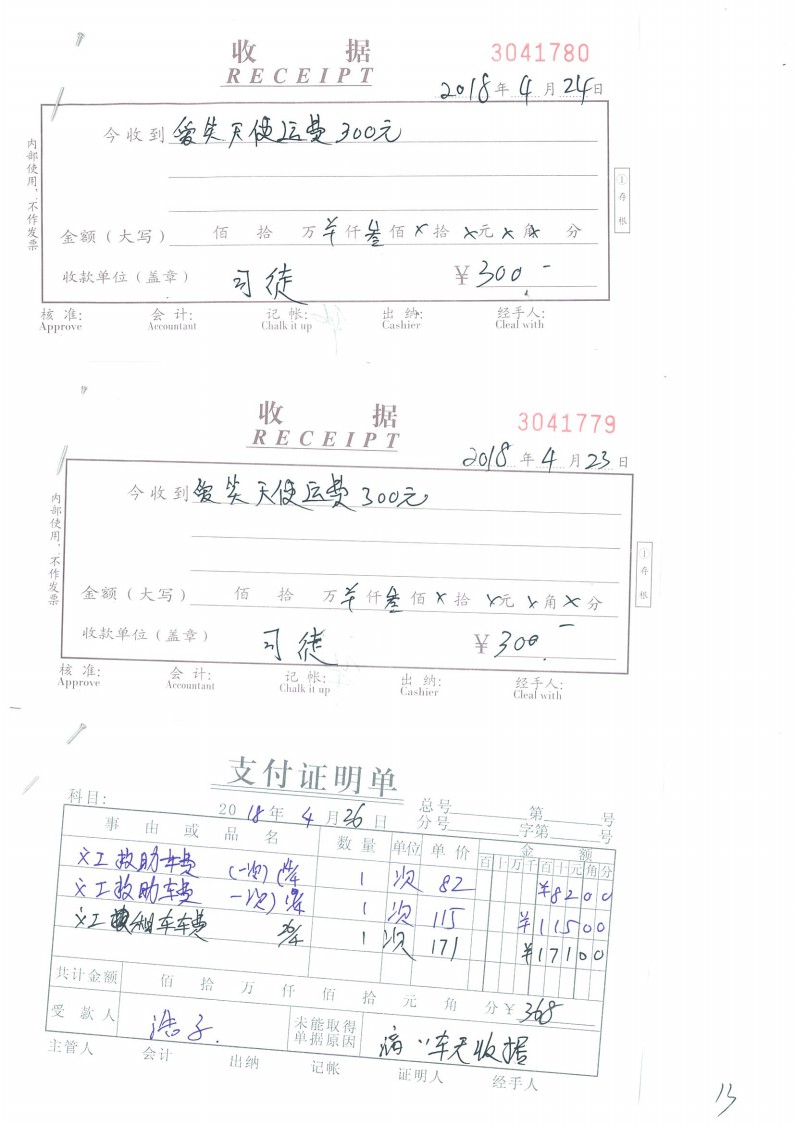 收 据 3041780
RECEIPT
2018年4月24日
今收到 爱笑天使运费300元
内部使用,不作发票
①存根
金额(大写) 佰 拾 万 仟叁佰×拾×元×角× 分
收款单位(盖章) 司徒 ¥300.-
核 准: 会 计: 记 帐: 出 纳: 经手人:
Approve Accountant Chalk it up Cashier Cleal with
收 据 3041779
RECEIPT
2018年4月23日
今收到 爱笑天使运费300元
内部使用,不作发票
①存根
金额(大写) 佰 拾 万 仟叁佰×拾×元×角×分
收款单位(盖章) 司徒 ¥300.-
核 准: 会 计: 记 帐: 出 纳: 经手人:
Approve Accountant Chalk it up Cashier Cleal with
支付证明单
科目: 2018年4月26日 总号 第 号
分号 字第 号
事 由 或 品 名 数 量 单位 单 价 金 额
百十万千百十元角分
义工救助车费 (一次) 1 次 82 ¥8200
义工救助车费 一次) 1 次 115 ¥11500
义工 租车车费 1 次 171 ¥17100
共计金额 佰 拾 万 仟 佰 拾 元 角 分¥368
受 款 人 浩子. 未能取得单据原因 车无收据
主管人 会计 出纳 记帐 证明人 经手人
13